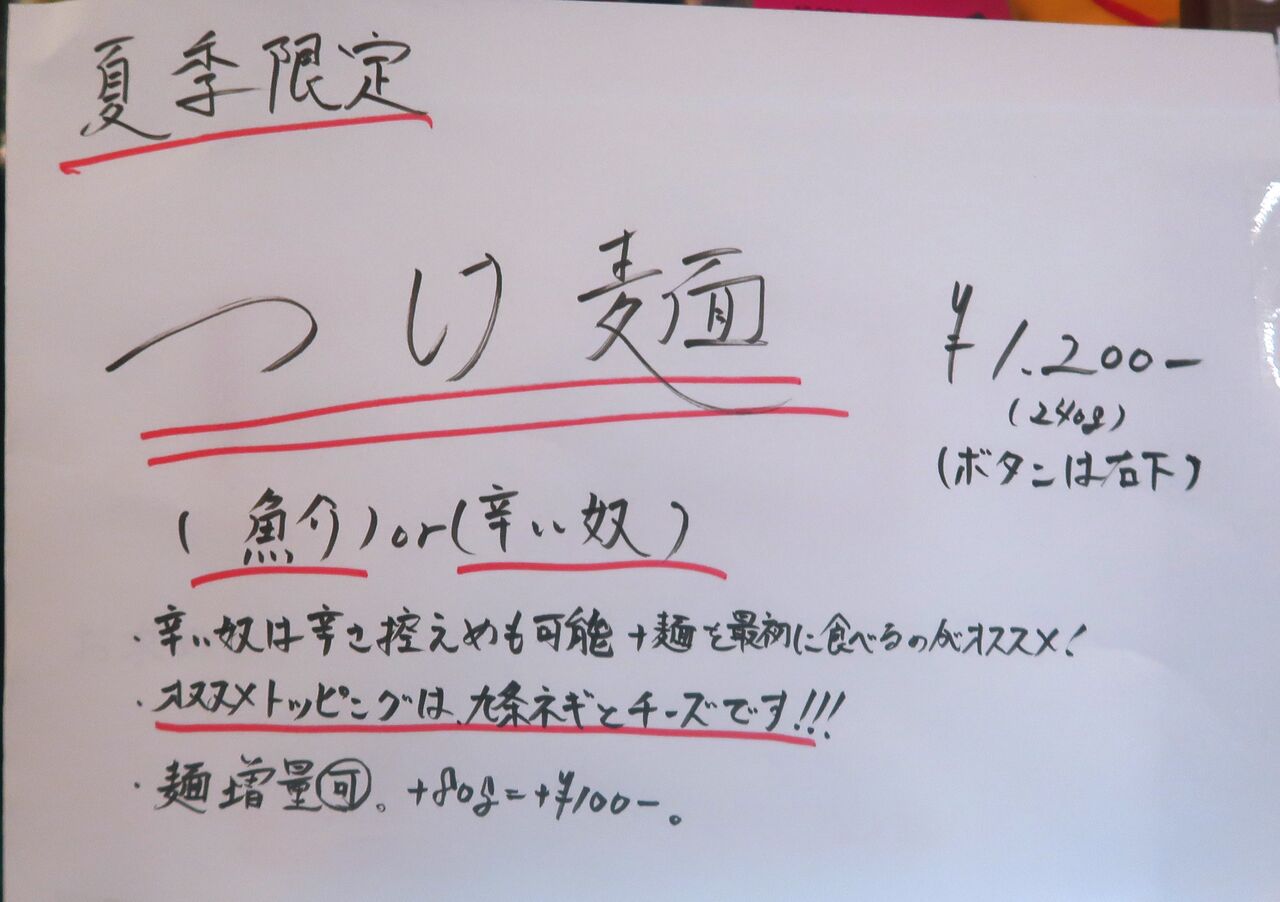 夏季限定
つけ麺
¥1.200-
(240g)
(ボタンは右下)
(魚介)or(辛い奴)
・辛い奴は辛さ控えめも可能 +麺を最初に食べるのがオススメ!
・オススメトッピングは、九条ネギとチーズです!!!
・麺増量㊢。+80g=+¥100-。